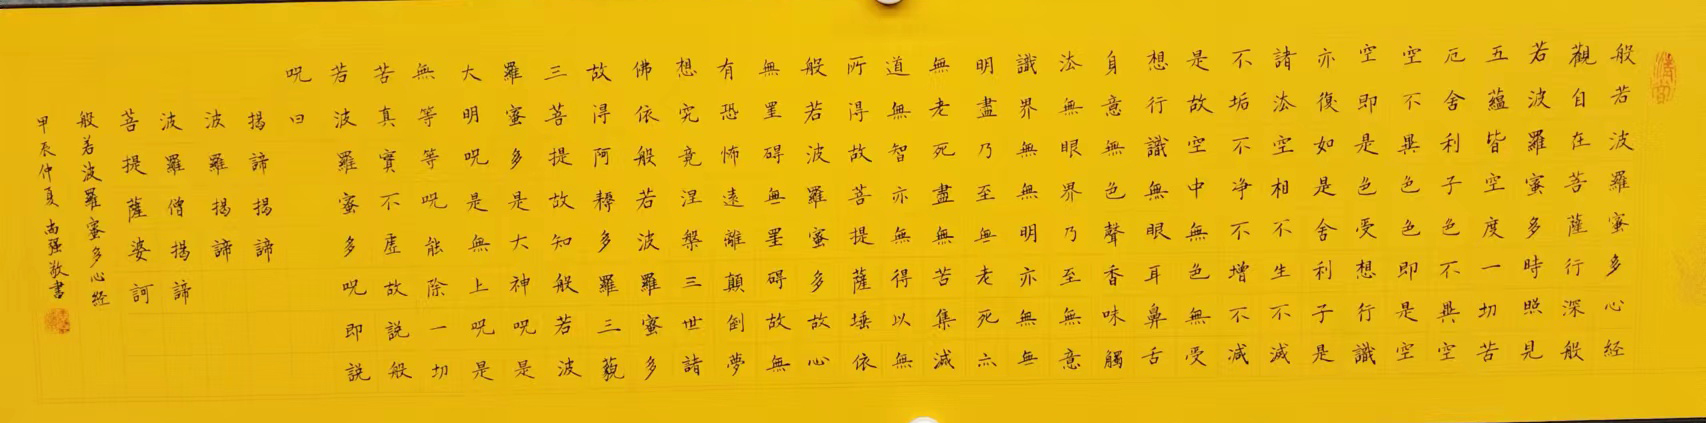 般若波羅蜜多心经
觀自在菩薩行深般
若波羅蜜多時照見
五蘊皆空度一切苦
厄舍利子色不異空
空不異色色即是空
空即是色受想行識
亦復如是舍利子是
諸法空相不生不滅
不垢不净不增不減
是故空中無色無受
想行識無眼耳鼻舌
身意無色聲香味觸
法無眼界乃至無意
識界無無明亦無無
明盡乃至無老死亦
無老死盡無苦集滅
道無智亦無得以無
所得故菩提薩埵依
般若波羅蜜多故心
無罣碍無罣碍故無
有恐怖遠離顛倒夢
想究竟涅槃三世諸
佛依般若波羅蜜多
故得阿耨多羅三藐
三菩提故知般若波
羅蜜多是大神呪是
大明呪是無上呪是
無等等呪能除一切
苦真實不虛故説般
若波羅蜜多呪即説
呪曰
揭諦揭諦
波羅揭諦
波羅僧揭諦
菩提薩婆訶
般若波羅蜜多心经
甲辰仲夏 尚强敬書